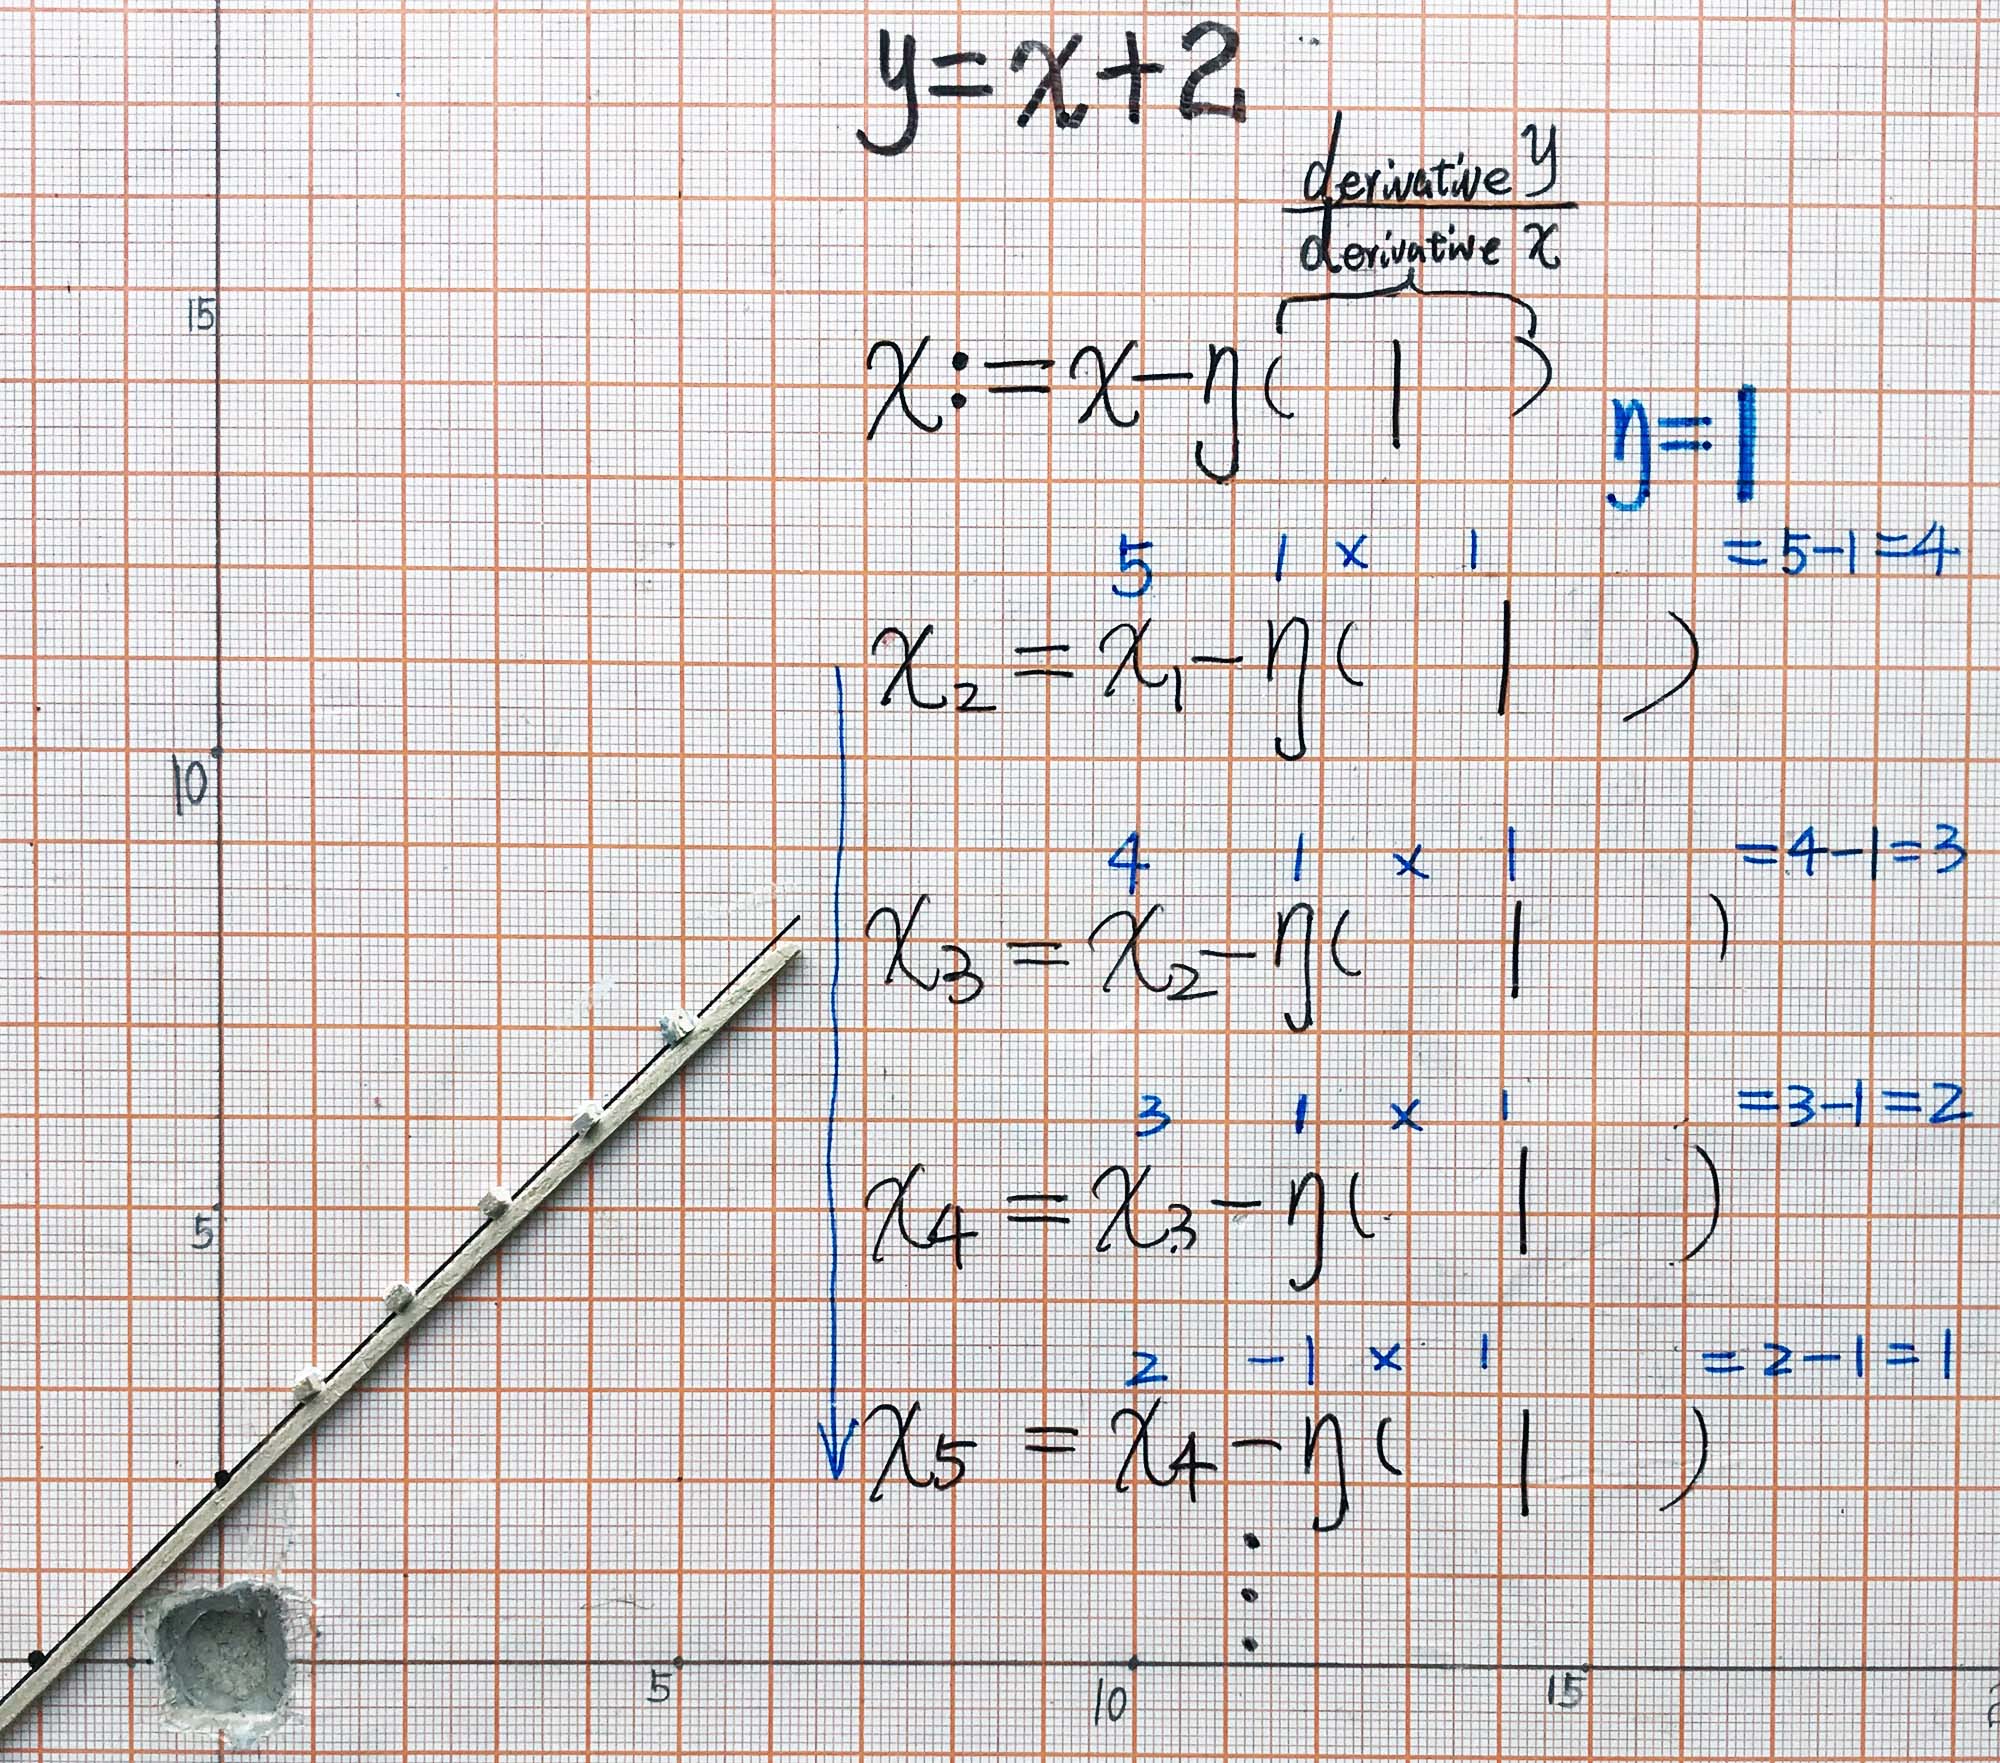 y=x+2
derivative y
derivative x
15
x:=x-η( 1 )
η=1
5 1 × 1 =5-1=4
x₂ = x₁-η( 1 )
10
4 1 × 1 =4-1=3
x₃ = x₂-η( 1 )
3 1 × 1 =3-1=2
x₄ = x₃-η( 1 )
5
2 -1 × 1 =2-1=1
x₅ = x₄-η( 1 )
5 10 15